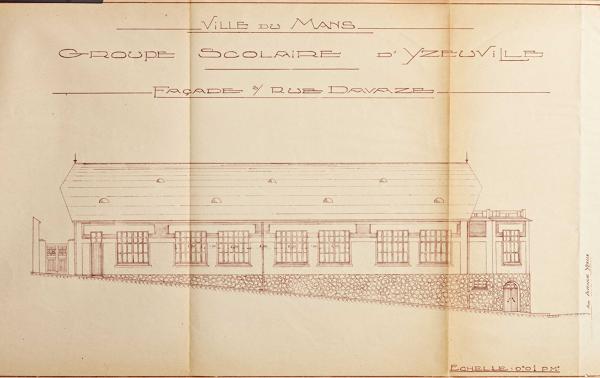 VILLE DU MANS
GROUPE SCOLAIRE D'YZEUVILLE
FAÇADE S/ RUE DAVAZE
ECHELLE . 0.01 P.M.